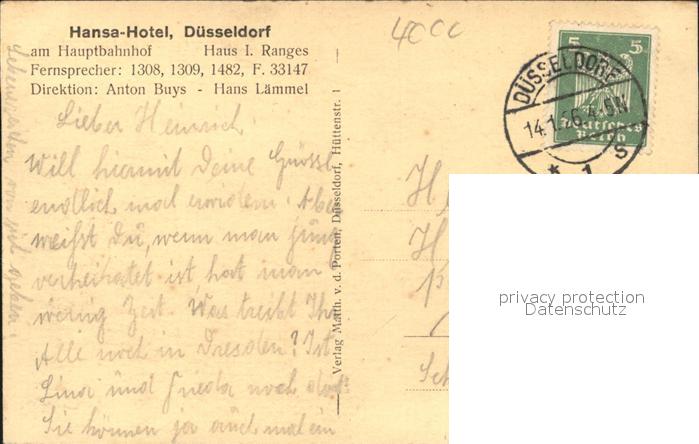 Hansa-Hotel, Düsseldorf
am Hauptbahnhof Haus I. Ranges
Fernsprecher: 1308, 1309, 1482, F. 33147
Direktion: Anton Buys - Hans Lämmel
Verlag Matth. v. d. Porten, Düsseldorf, Hüttenstr. 1
5 5
Deutsches
Reich
DÜSSELDORF
14.1.26. 4-5N
* 1 s
Lieber Heinrich
Will hiermit Deine Grüsse
endlich mal erwidern. Aber
weißt Du, wenn man jung
verheiratet ist, hat man
wenig Zeit. Was treibt Ihr
Alle noch in Dresden? Ist
Lina und Frieda noch dort
Sie können ja auch mal ein
H
H
Sch
privacy protection
Datenschutz